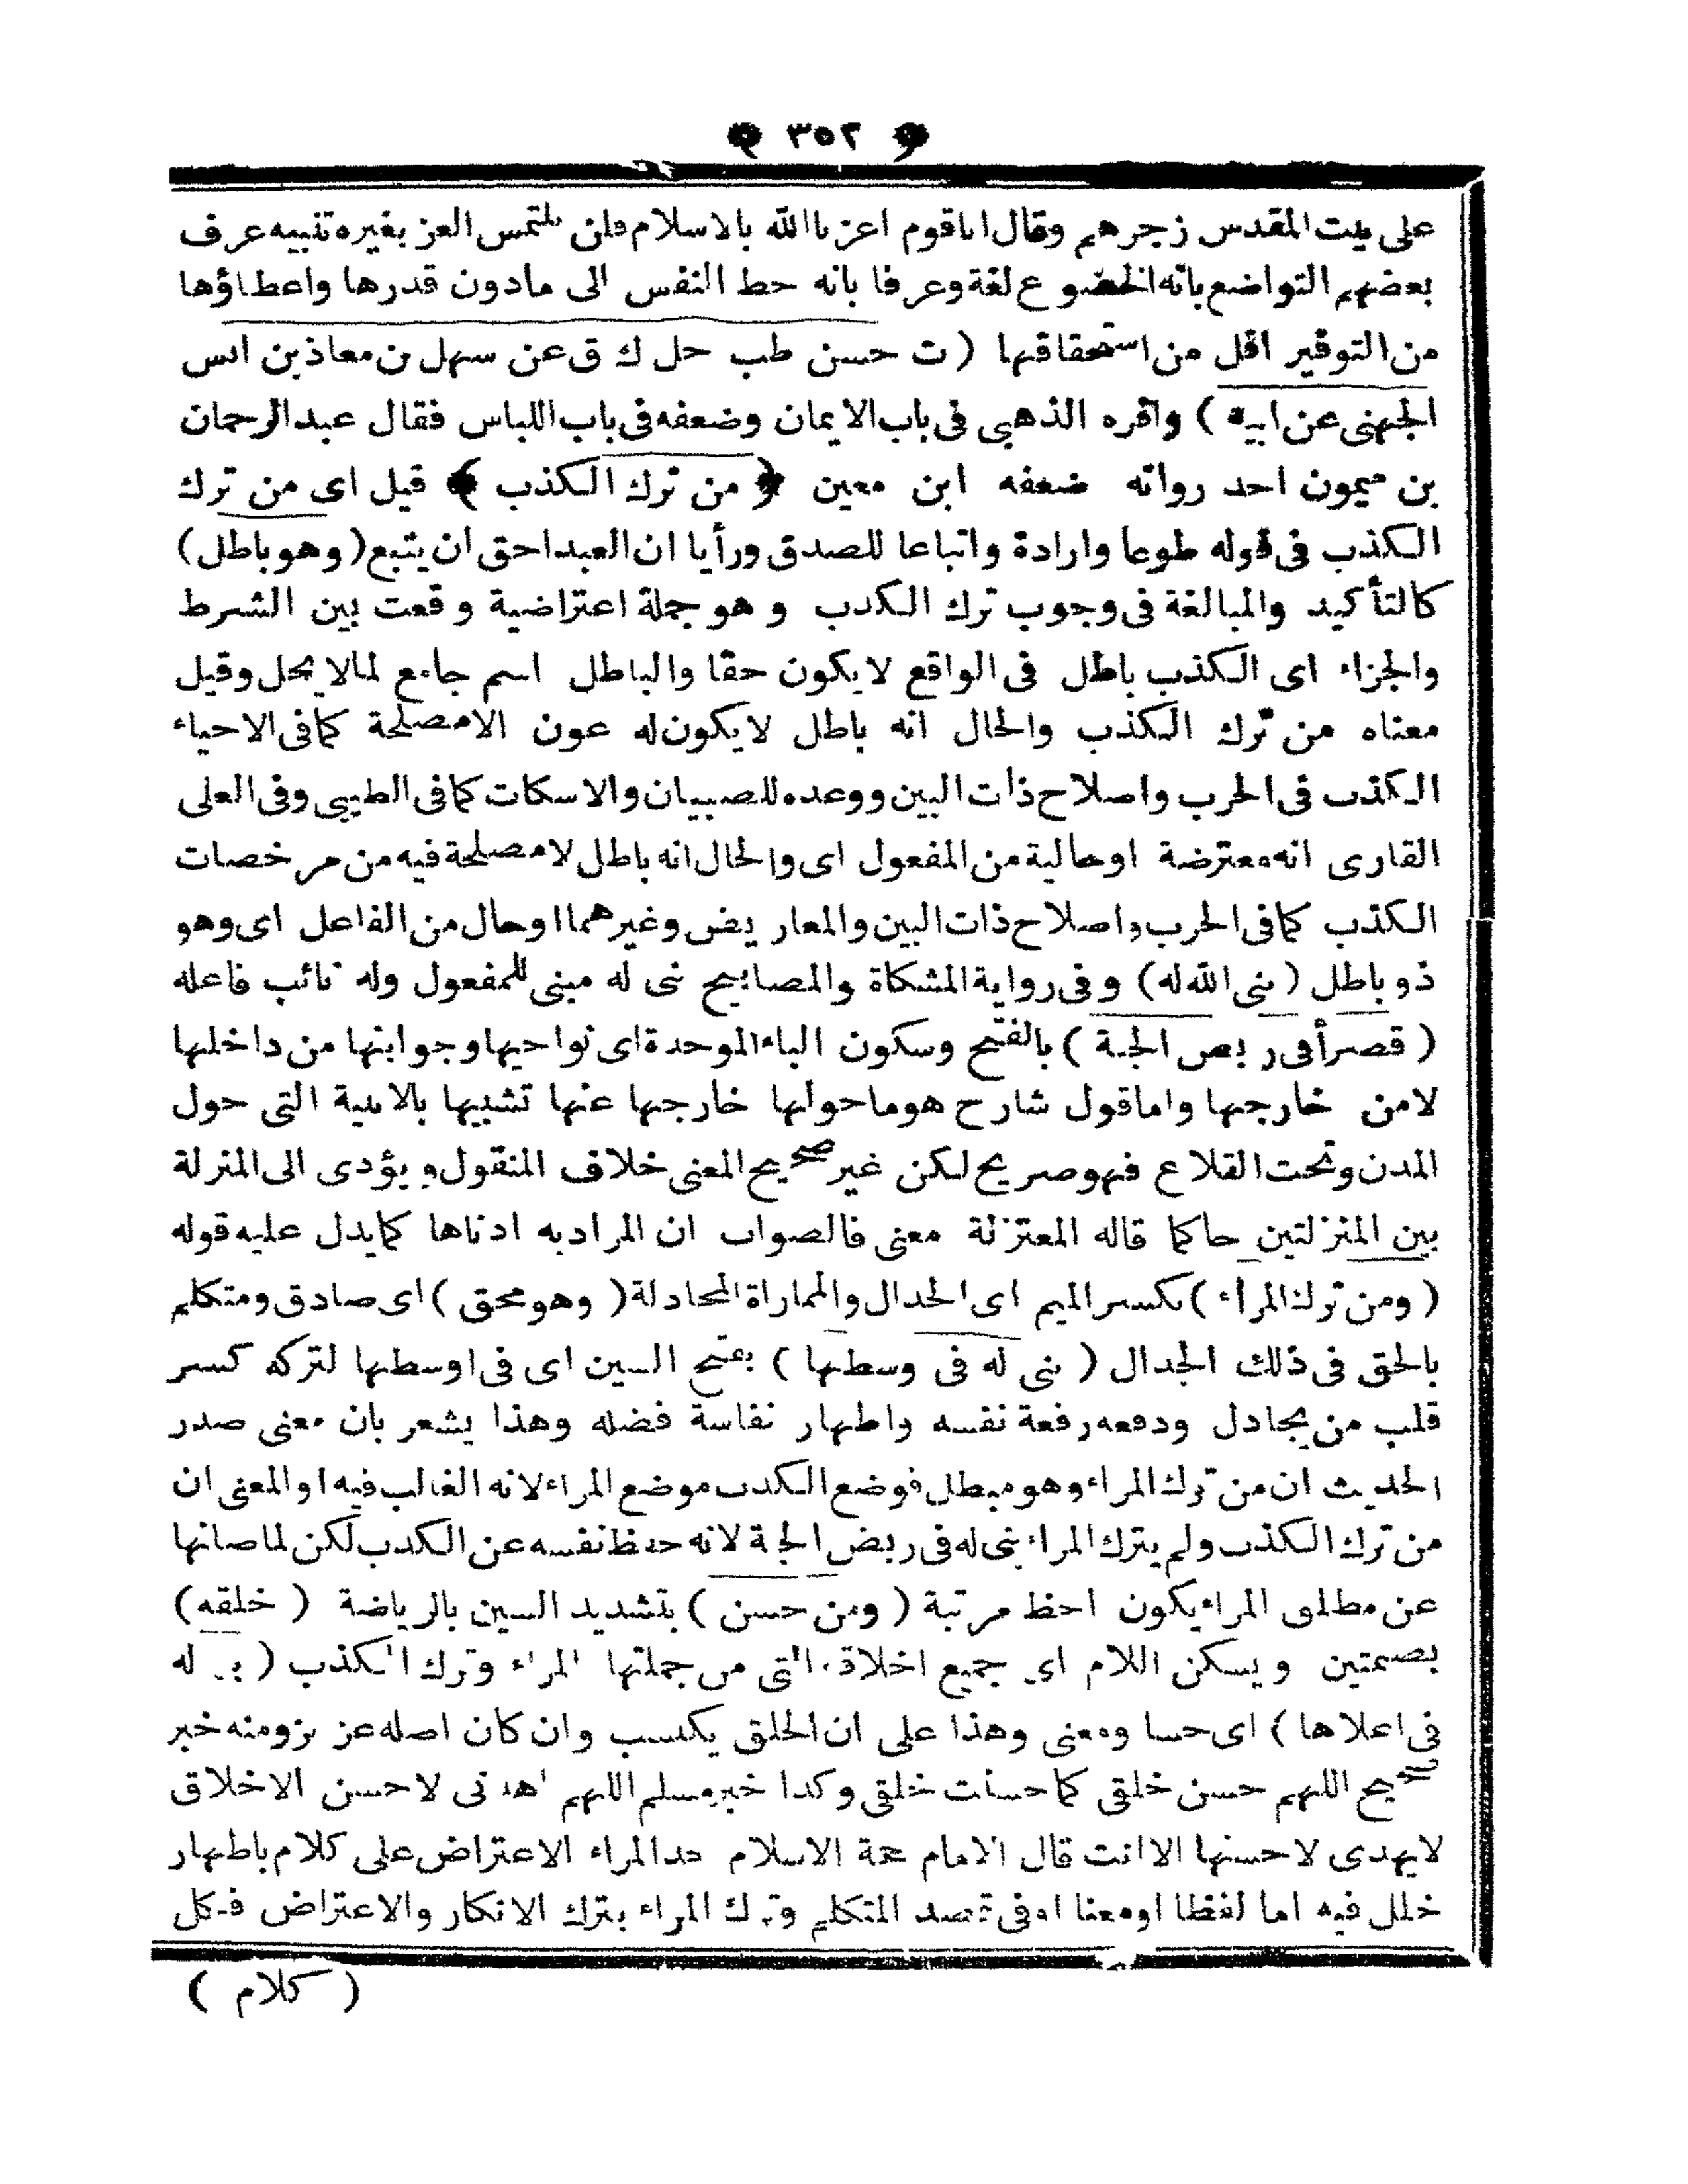 ﴿ ٣٥٢ ﴾
على بيت المقدس زجرهم وقال انا قوم اعزنا الله بالاسلام فلن نلتمس العز بغيره تنبيه عرف
بعضهم التواضع بانه الخضوع لغة وعرفا بانه حط النفس الى مادون قدرها واعطاؤها
من التوقير اقل من استحقاقها ( ت حسن طب حل ك ق عن سهل بن معاذ بن انس
الجهنى عن ابيه ) واقره الذهبى فى باب الايمان وضعفه فى باب اللباس فقال عبد الرحمان
بن ميمون احد رواته ضعفه ابن معين ﴿ من ترك الكذب ﴾ قيل اى من ترك
الكذب فى قوله طوعا وارادة واتباعا للصدق ورأيا ان العبد احق ان يتبع ( وهو باطل )
كالتأكيد والمبالغة فى وجوب ترك الكذب و هو جملة اعتراضية وقعت بين الشرط
والجزاء اى الكذب باطل فى الواقع لا يكون حقا والباطل اسم جامع لمالا يحل وقيل
معناه من ترك الكذب والحال انه باطل لا يكون له عون الا مصلحة كما فى الاحياء
الكذب فى الحرب واصلاح ذات البين ووعده للصبيان والاسكات كما فى الطيبى وفى العلى
القارى انه معترضة اوحالية من المفعول اى والحال انه باطل لا مصلحة فيه من مرخصات
الكذب كما فى الحرب واصلاح ذات البين والمعاريض وغيرهما اوحال من الفاعل اى وهو
ذو باطل ( بنى الله له ) وفى رواية المشكاة والمصابيح بنى له مبنى للمفعول وله نائب فاعله
( قصرأ فى ربض الجنة ) بالفتح وسكون الباء الموحدة اى نواحيها وجوانبها من داخلها
لامن خارجها واما قول شارح هو ما حولها خارجها عنها تشبيها بالابنية التى حول
المدن وتحت القلاع فهو صريح لكن غير صحيح المعنى خلاف المنقول ويؤدى الى المنزلة
بين المنزلتين حاكما قاله المعتزلة معنى فالصواب ان المراد به ادناها كما يدل عليه قوله
( ومن ترك المراء ) بكسر الميم اى الجدال والمماراة المجادلة ( وهو محق ) اى صادق ومتكلم
بالحق فى ذلك الجدال ( بنى له فى وسطها ) بفتح السين اى فى اوسطها لتركه كسر
قلب من يجادل ودفعه رفعة نفسه واظهار نفاسة فضله وهذا يشعر بان معنى صدر
الحديث ان من ترك المراء وهو مبطل فوضع الكذب موضع المراء لانه الغالب فيه او المعنى ان
من ترك الكذب ولم يترك المراء بنى له فى ربض الجنة لانه حفظ نفسه عن الكذب لكن لما صانها
عن مطلق المراء يكون احظ مرتبة ( ومن حسن ) بتشديد السين بالرياضة ( خلقه )
بضمتين ويسكن اللام اى جميع اخلاقه التى من جملتها المراء وترك الكذب ( بنى له
فى اعلاها ) اى حسا ومعنى وهذا على ان الخلق يكتسب وان كان اصله غريزو منه خبر
صحيح اللهم حسن خلقى كما حسنت خلقى وكذا خبر مسلم اللهم اهدنى لاحسن الاخلاق
لا يهدى لاحسنها الا انت قال الامام حجة الاسلام حد المراء الاعتراض على كلام باظهار
خلل فيه اما لفظا او معنا او فى قصد المتكلم وترك المراء بترك الانكار والاعتراض فكل
( كلام )